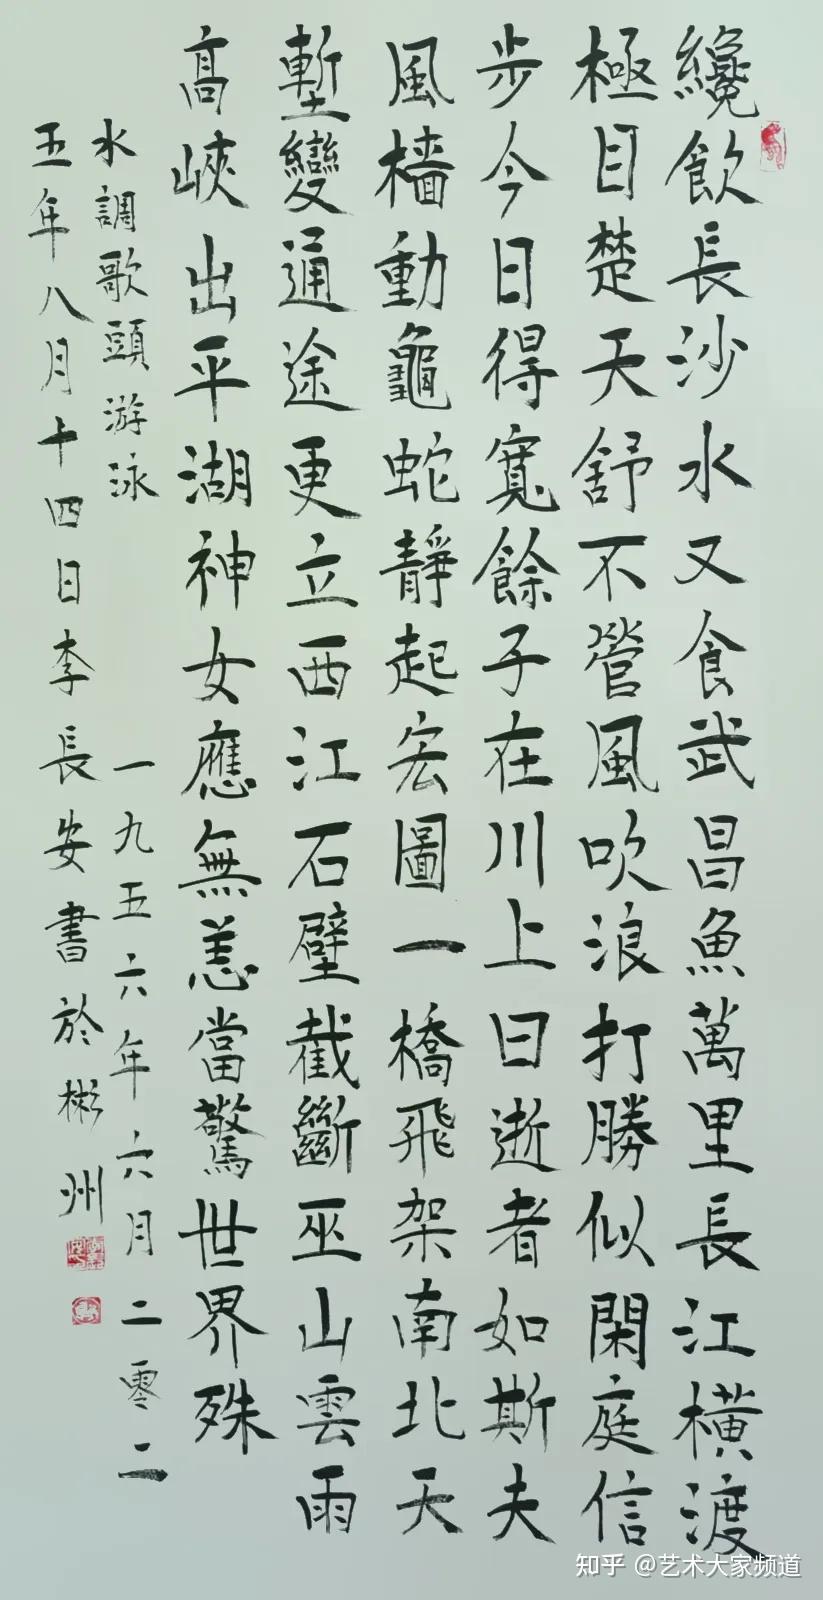 纔飲長沙水又食武昌魚萬里長江橫渡
極目楚天舒不管風吹浪打勝似閑庭信
步今日得寬餘子在川上曰逝者如斯夫
風檣動龜蛇靜起宏圖一橋飛架南北天
塹變通途更立西江石壁截斷巫山雲雨
高峽出平湖神女應無恙當驚世界殊
水調歌頭游泳 一九五六年六月 二零二
五年八月十四日李長安書於彬州
知乎 @艺术大家频道